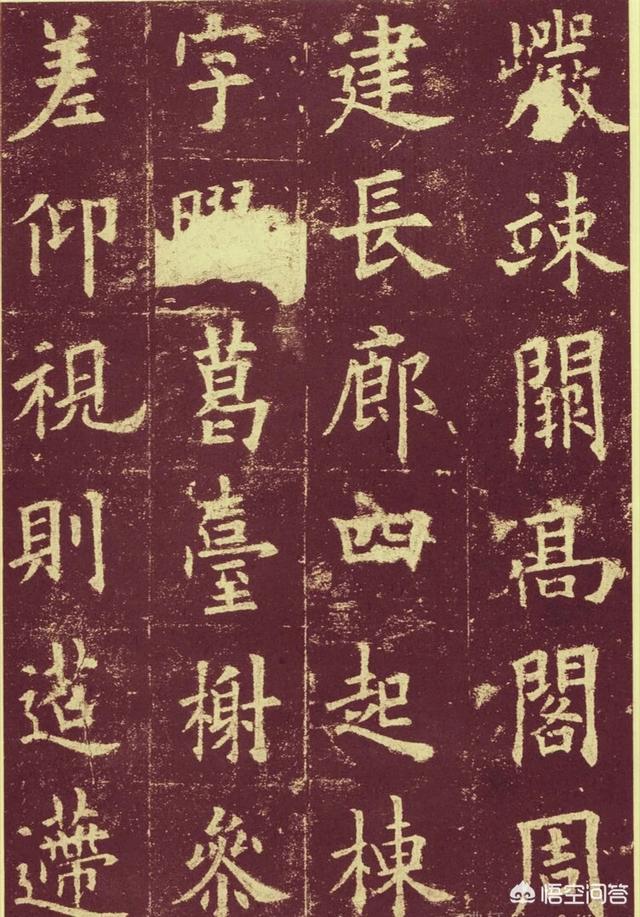 巖竦闕高閣周
建長廊四起棟
宇葛臺榭參
差仰視則迢遰
悟空问答